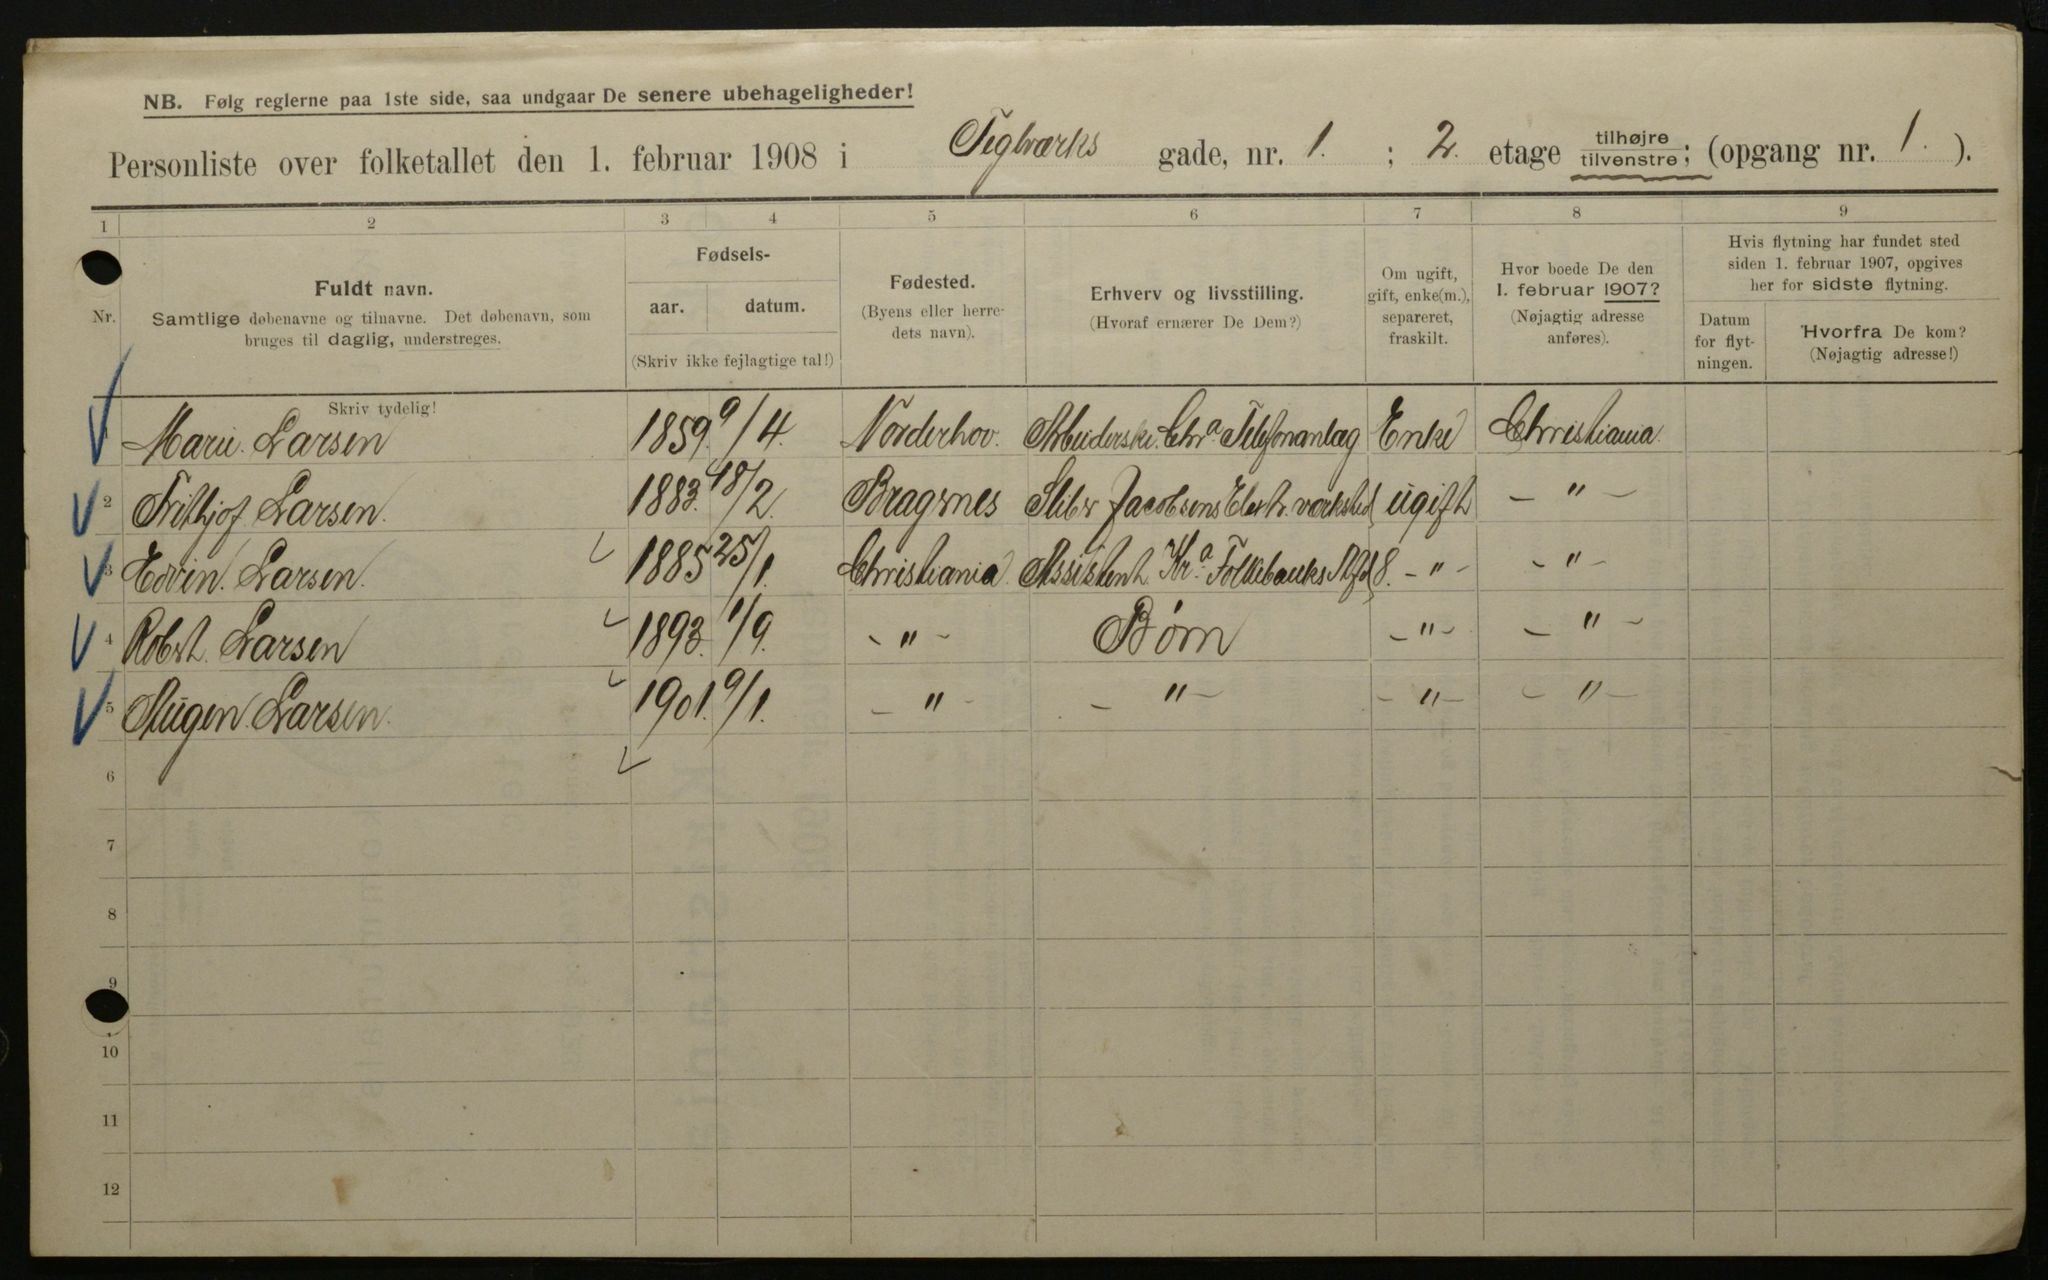 NB. Følg reglerne paa 1ste side, saa undgaar De senere ubehageligheder!
Personliste over folketallet den 1. februar 1908 i Teglværks gade, nr. 1. ; 2. etage tilhøjre tilvenstre; (opgang nr. 1. ).
1 2 3 4 5 6 7 8 9
Nr.
Fuldt navn.
Samtlige døbenavne og tilnavne. Det døbenavn, som
bruges til daglig, understreges.
Skriv tydelig!
Fødsels-
aar. datum.
(Skriv ikke fejlagtige tal!)
Fødested.
(Byens eller herre-
dets navn).
Erhverv og livsstilling.
(Hvoraf ernærer De Dem?)
Om ugift,
gift, enke(m.),
separeret,
fraskilt.
Hvor boede De den
1. februar 1907?
(Nøjagtig adresse
anføres).
Hvis flytning har fundet sted
siden 1. februar 1907, opgives
her for sidste flytning.
Datum
for flyt-
ningen.
Hvorfra De kom?
(Nøjagtig adresse!)
Marie. Larsen 1859. 9/4. Norderhov. Arbeiderske. Chr.a Telefonanlæg Enke Christiania.
2 Frithjof Larsen. 1883. 18/2. Bragernes Sliber Jacobsens Elektr. værksted ugift - " -
3 Edvin. Larsen. 1885 25/1. Christiania Assistent Kr.a Folkebanks Afd 8. - " - - " -
4 Robert. Larsen 1893. 1/9. - " - Børn - " - - " -
5 Augen. Larsen. 1901. 9/1. - " - - " - - " - - " -
6
7
8
9
10
11
12